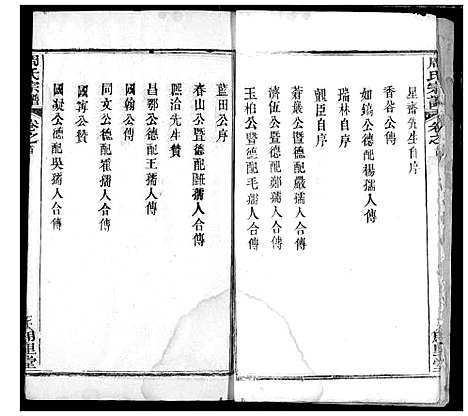 周氏宗譜
卷之首
星齋先生自序
香谷公傳
如鎬公德配楊孺人合傳
瑞林自序
覲臣自序
蒼巖公暨德配嚴孺人合傳
濟伍公暨德配鄭孺人合傳
玉柏公暨德配毛孺人合傳
藍田公序
春山公暨德配孺人合傳
熙治先生贊
昌鄂公德配王孺人傳
國翰公傳
同文公德配崔孺人合傳
國寧公贊
國凝公德配吳孺人合傳
周氏宗譜
卷之首